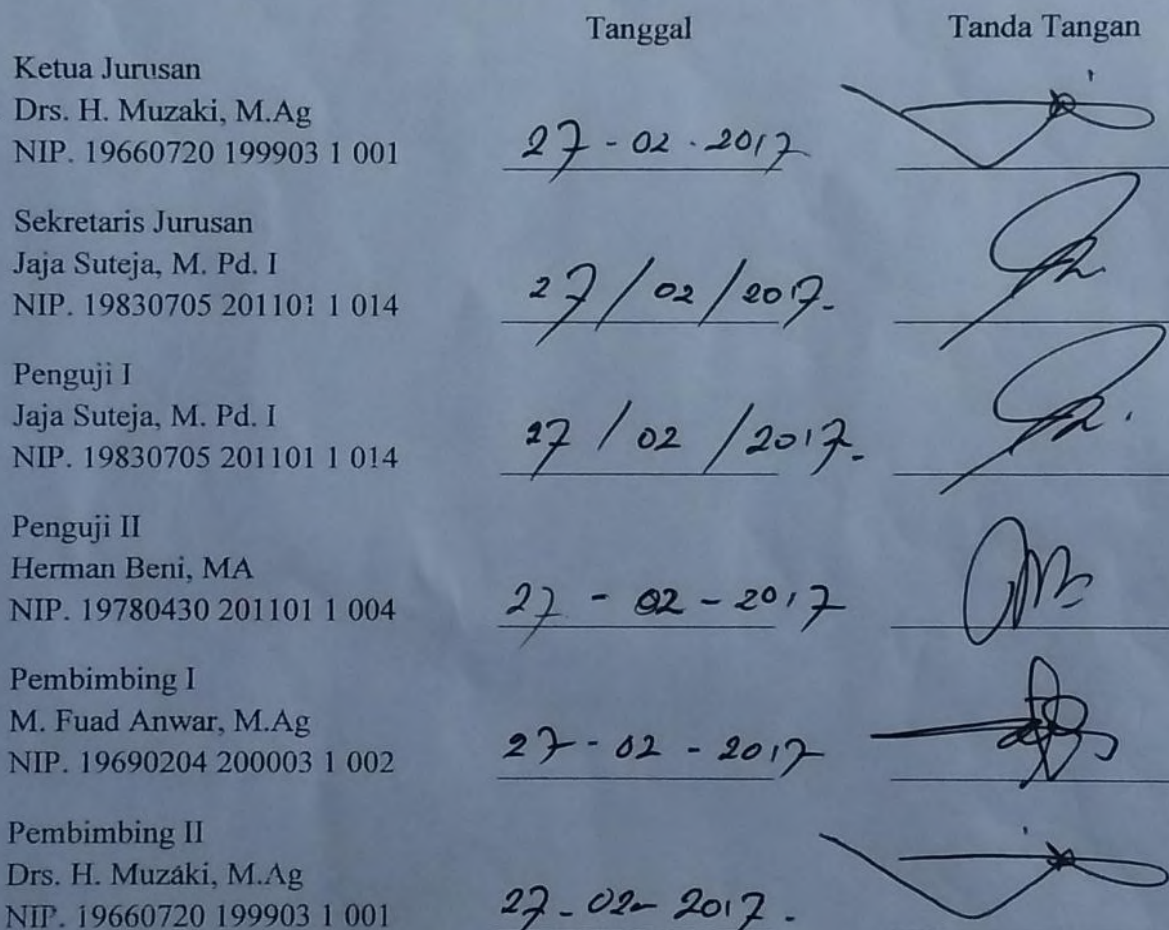 Tanggal Tanda Tangan
Ketua Jurusan
Drs. H. Muzaki, M.Ag
NIP. 19660720 199903 1 001 27 - 02 - 2017
Sekretaris Jurusan
Jaja Suteja, M. Pd. I
NIP. 19830705 201101 1 014 27/02/2017-
Penguji I
Jaja Suteja, M. Pd. I
NIP. 19830705 201101 1 014 27 / 02 / 2017-
Penguji II
Herman Beni, MA
NIP. 19780430 201101 1 004 27 - 02 - 2017
Pembimbing I
M. Fuad Anwar, M.Ag
NIP. 19690204 200003 1 002 27 - 02 - 2017
Pembimbing II
Drs. H. Muzaki, M.Ag
NIP. 19660720 199903 1 001 27 - 02 - 2017 -